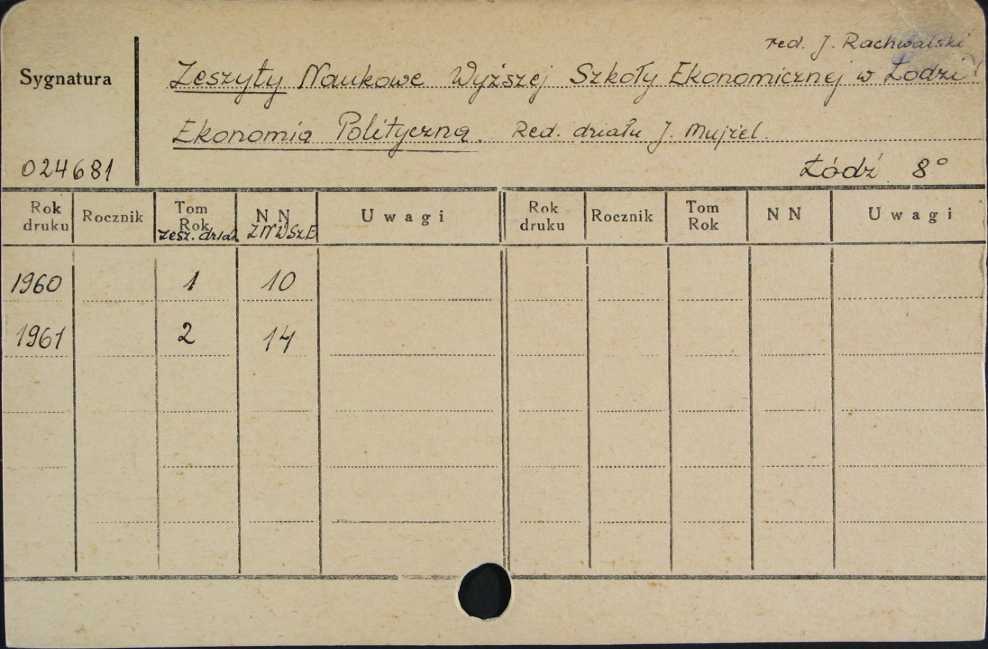 red. J. Rachwalski
Sygnatura
Zeszyty Naukowe Wyższej Szkoły Ekonomicznej w Łodzi
Ekonomia Polityczna. Red. działu J. Mujżel.
024681
Łódź 8°
Rok druku Rocznik Tom Rok zesz. dział N N ZNWSzE Uwagi Rok druku Rocznik Tom Rok N N Uwagi
1960 1 10
1961 2 14